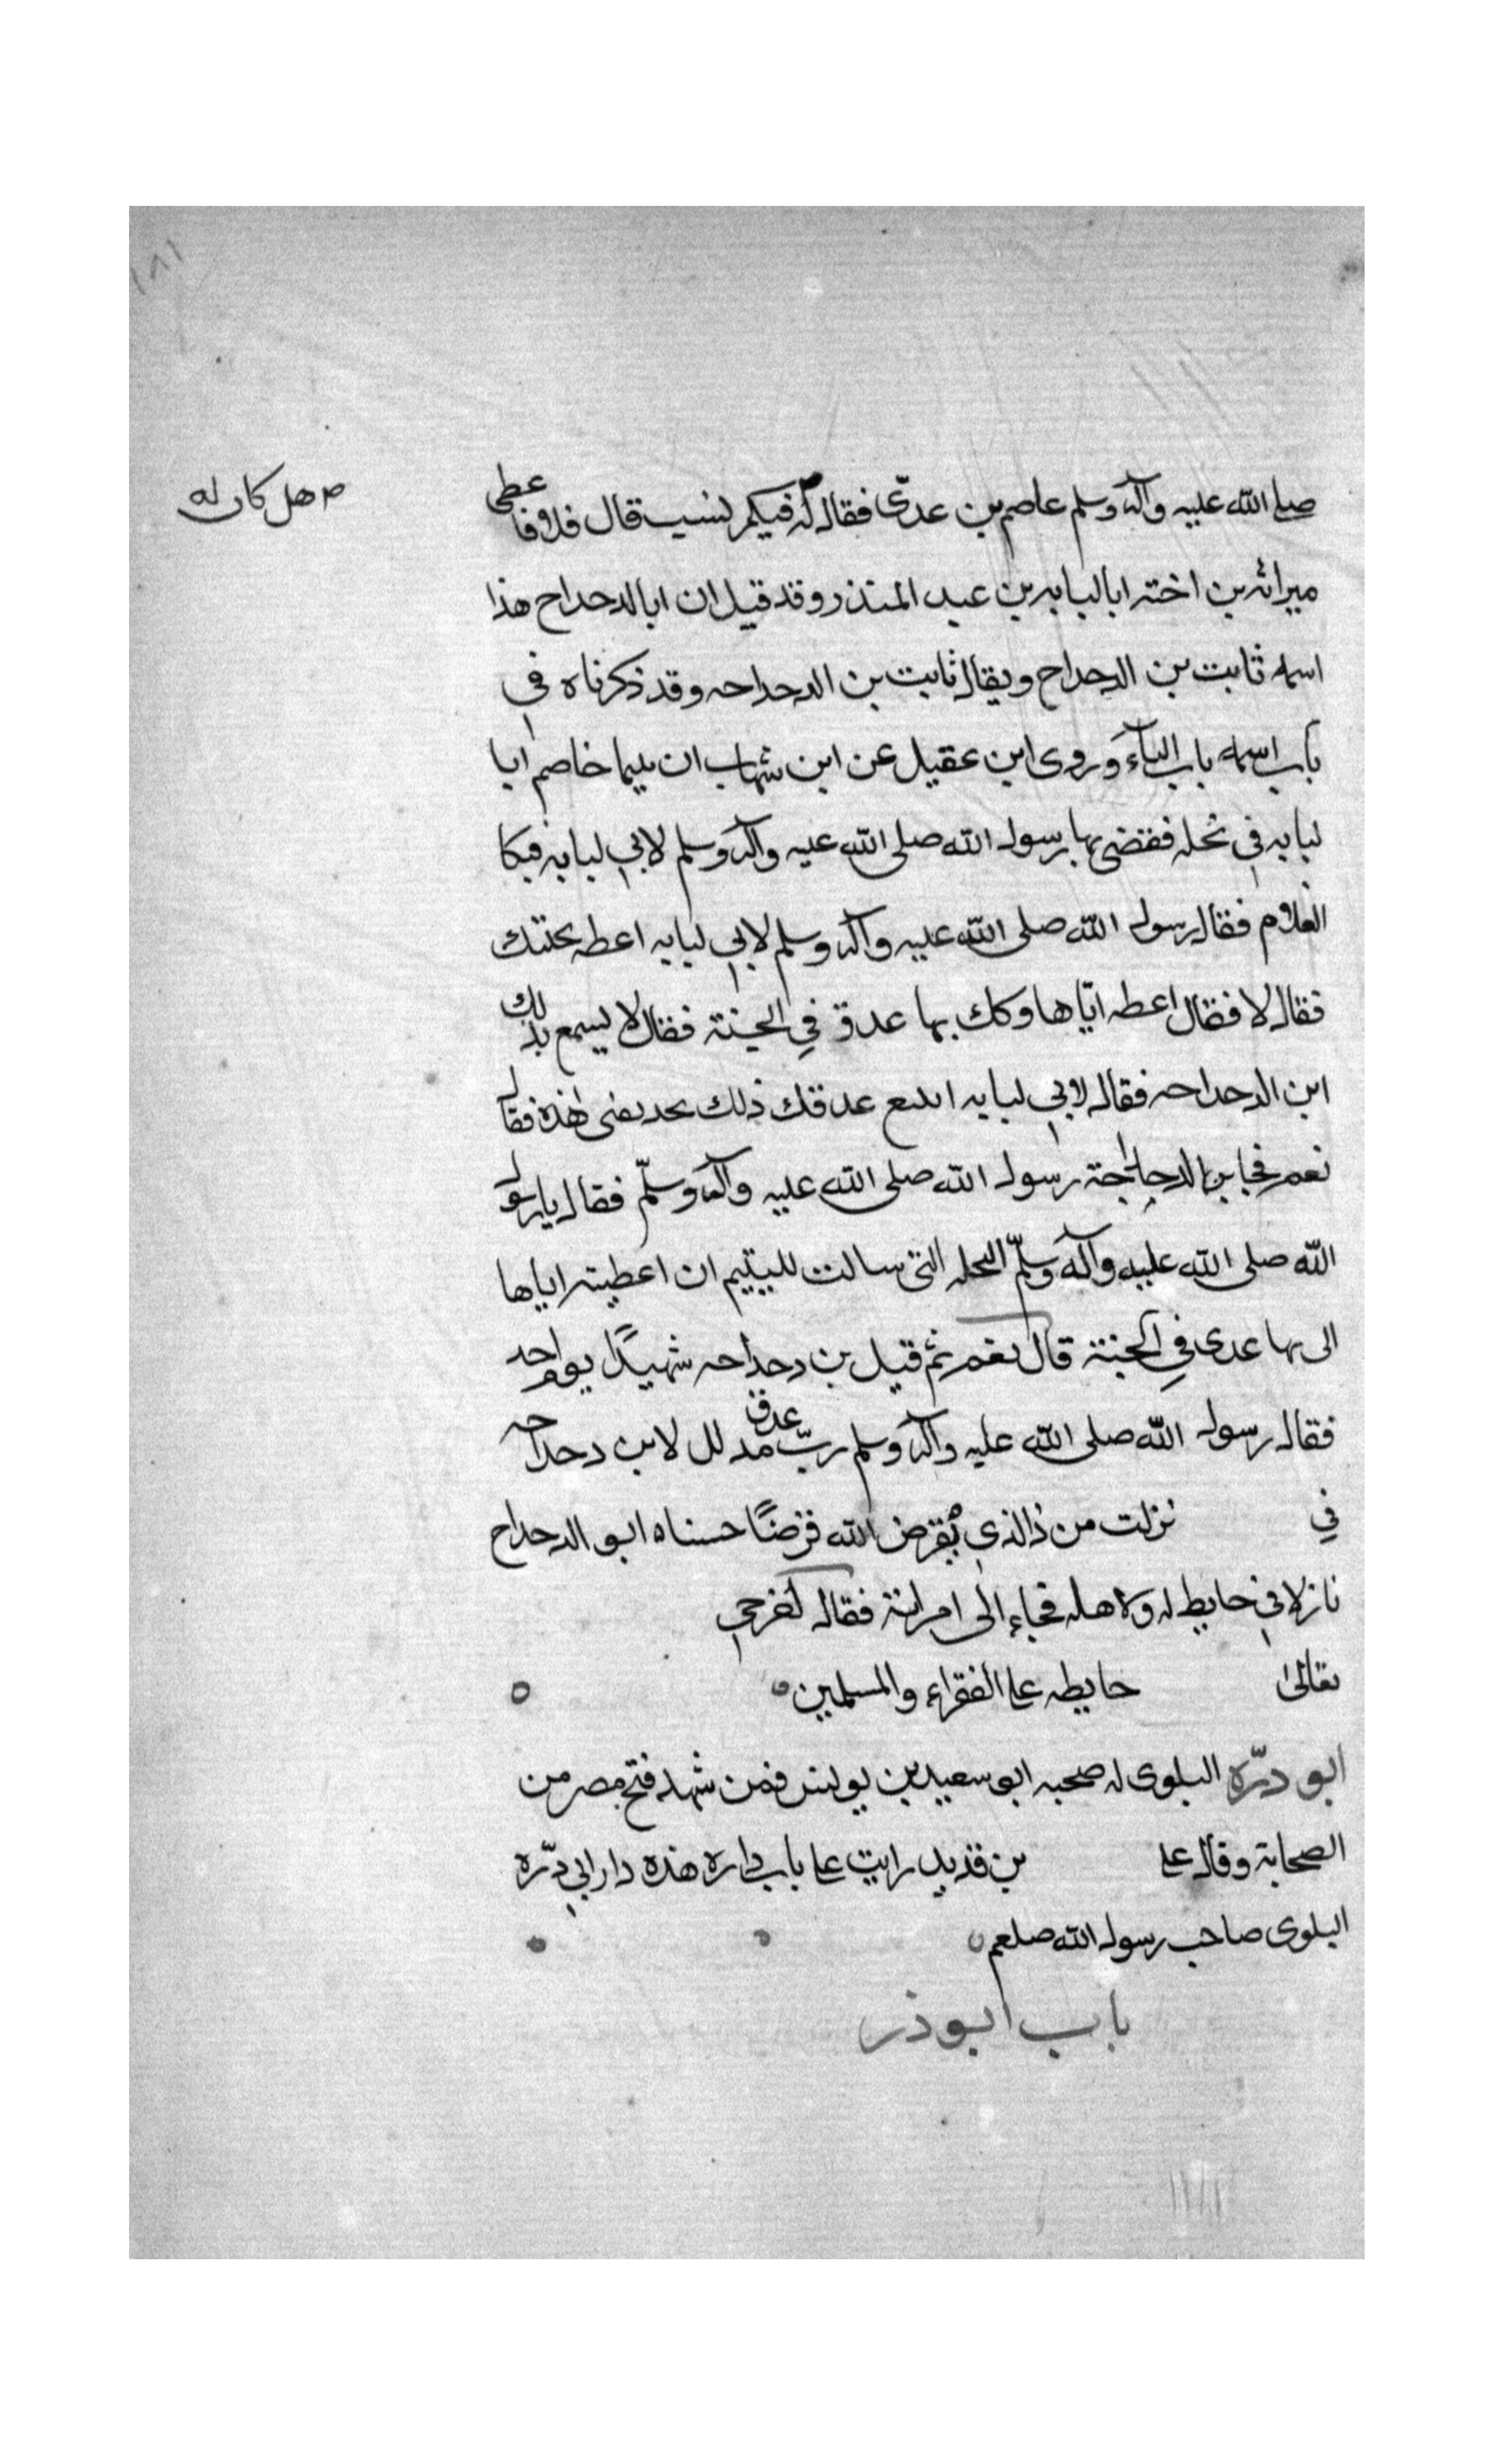 ١٨١
صلى الله عليه وآله وسلم عاصم بن عدى فقال له فيكم نسيب قال فلا فاعطى
ص هل كان له
ميراثه بن اخته ابا لبابه بن عبد المنذر وقد قيل ان ابا الدحداح هذا
اسمه ثابت بن الدحداح ويقال ثابت بن الدحداحه وقد ذكرناه في
باب اسمه باب الباء وروى ابن عقيل عن ابن شهاب ان يتيما خاصم ابا
لبابه في نخله فقضى بها رسول الله صلى الله عليه وآله وسلم لابي لبابه فبكا
الغلام فقال رسول الله صلى الله عليه وآله وسلم لابي لبابه اعطه نخلتك
فقال لا فقال اعطه اياها ولك بها عدق في الجنة فقال لا يسمع بذلك
ابن الدحداحه فقال لابي لبابه اتبيع عدقك ذلك بحديقتى هذه فقال
نعم فجا بن الدحداحة رسول الله صلى الله عليه وآله وسلم فقال يا رسول
الله صلى الله عليه وآله وسلم النخله التى سالت لليتيم ان اعطيته اياها
الى بها عدى في الجنة قال نعم ثم قيل بن دحداحه شهيدا يوم احد
فقال رسول الله صلى الله عليه وآله وسلم رب عدق مدلل لابن دحداحه
في نزلت من ذا الذي يقرض الله قرضا حسناه ابو الدحداح
نازلا في حايط له ولاهله فجاء الى امراته فقال اخرجي
تعالى حايطه على الفقراء والمسلمين
ابو درّه البلوى له صحبه ابو سعيد بن يونس فمن شهد فتح مصر من
الصحابة وقال على بن قديد رايت على باب داره هذه دار ابي درّه
البلوى صاحب رسول الله صلعم
باب ابو ذر